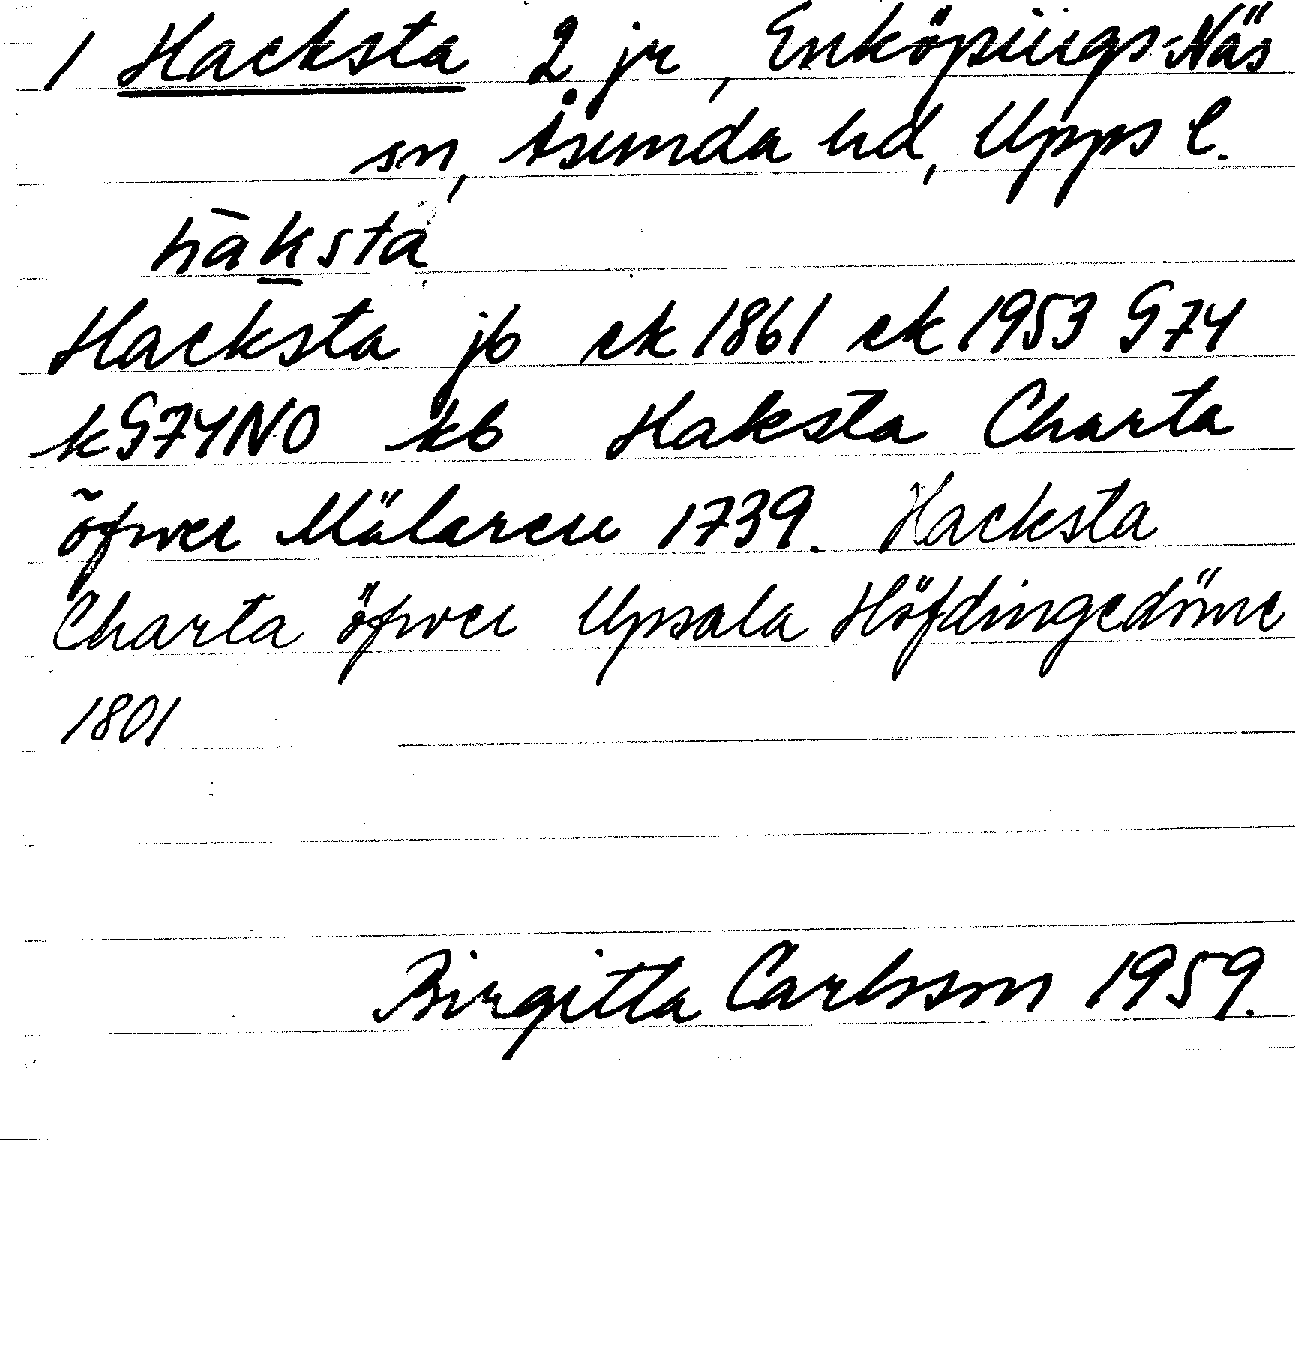 1 Hacksta 2 jr, Enköpings-Näs
sn, Åsunda hd, Upps l.
hāk̲sta
Hacksta jb ek 1861 ek 1953 G74
kG74NO kb Haksta Charta
õfwer Mälaren 1739. Hacksta
Charta öfwer Upsala Höfdingedöme
1801
Birgitta Carlsson 1959.